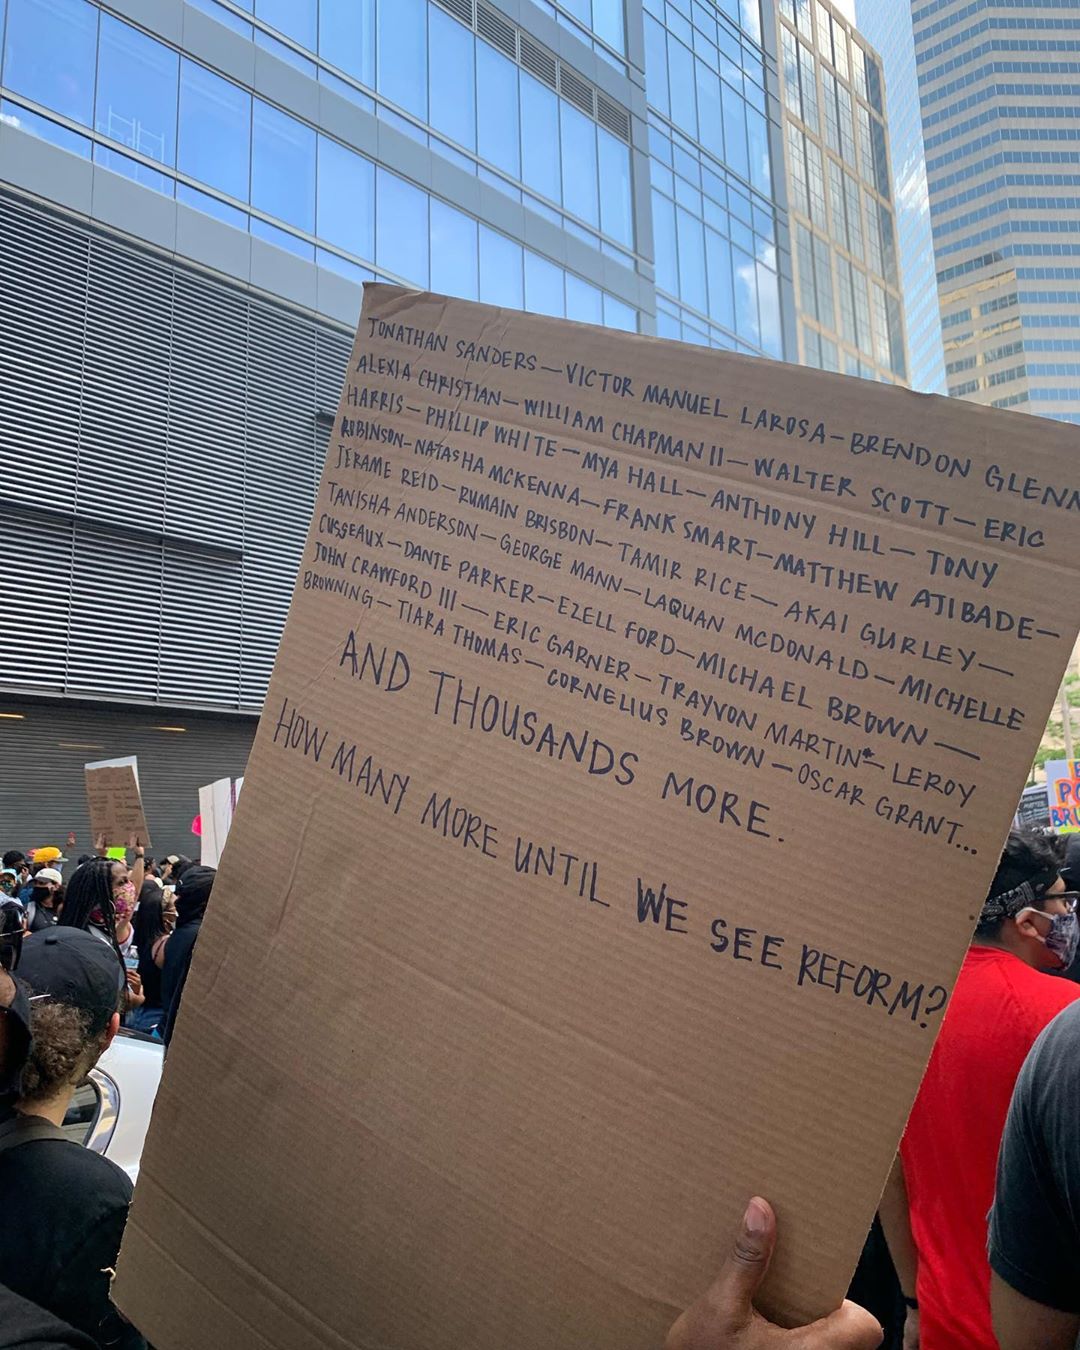 JONATHAN SANDERS—VICTOR MANUEL LAROSA—BRENDON GLENN
ALEXIA CHRISTIAN—WILLIAM CHAPMAN II—WALTER SCOTT—ERIC
HARRIS—PHILLIP WHITE—MYA HALL—ANTHONY HILL—TONY
ROBINSON—NATASHA MCKENNA—FRANK SMART—MATTHEW AJIBADE—
JERAME REID—RUMAIN BRISBON—TAMIR RICE—AKAI GURLEY—
TANISHA ANDERSON—GEORGE MANN—LAQUAN MCDONALD—MICHELLE
CUSSEAUX—DANTE PARKER—EZELL FORD—MICHAEL BROWN—
JOHN CRAWFORD III—ERIC GARNER—TRAYVON MARTIN*—LEROY
BROWNING—TIARA THOMAS—CORNELIUS BROWN—OSCAR GRANT...
AND THOUSANDS MORE.
HOW MANY MORE UNTIL WE SEE REFORM?